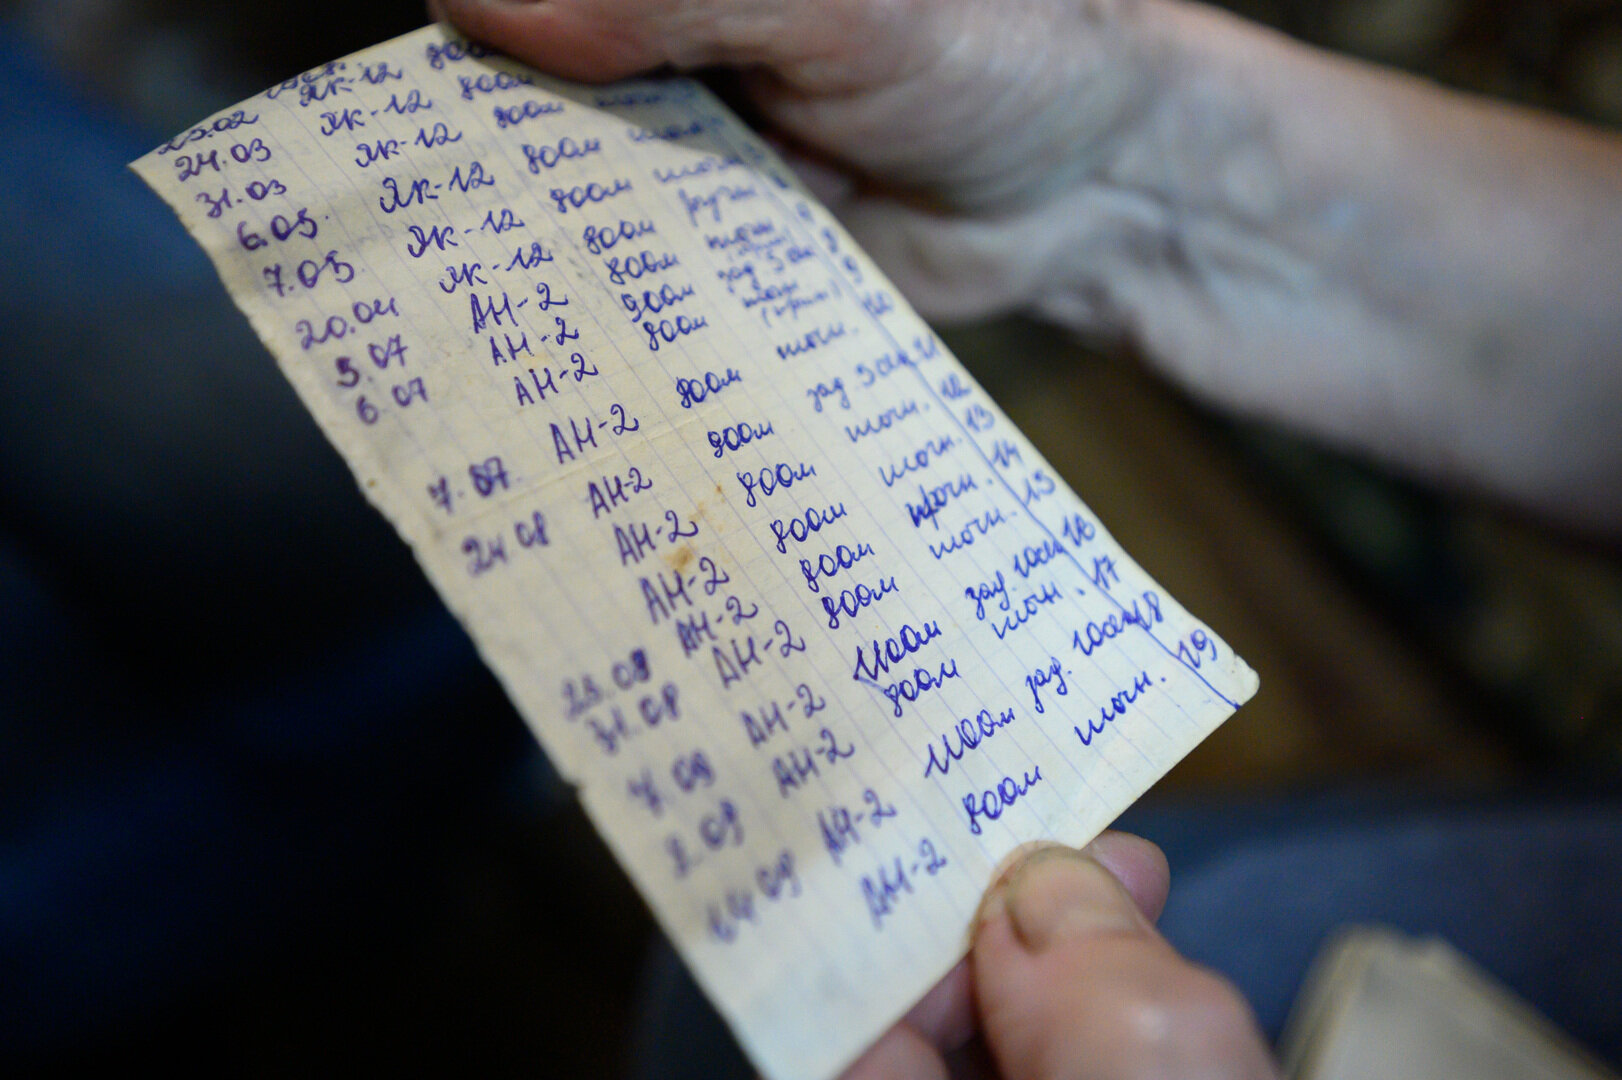 ЯК-12
24.03 ЯК-12 800м
31.03 ЯК-12 800м
6.05 ЯК-12 800м
7.05 ЯК-12 800м точн
20.04 ЯК-12 800м
5.07 АН-2 800м точн
6.07 АН-2 800м зад 5 сек 8
АН-2 800м точн 9
7.07 АН-2 800м точн. 10
24.08 АН-2 800м зад 5 сек 11
АН-2 800м точн. 12
АН-2 800м точн. 13
АН-2 800м 14
31.08 АН-2 800м точн. 15
АН-2 1100м зад. 10сек 16
АН-2 800м точн. 17
АН-2 1100м зад. 10сек 18
АН-2 800м точн. 19